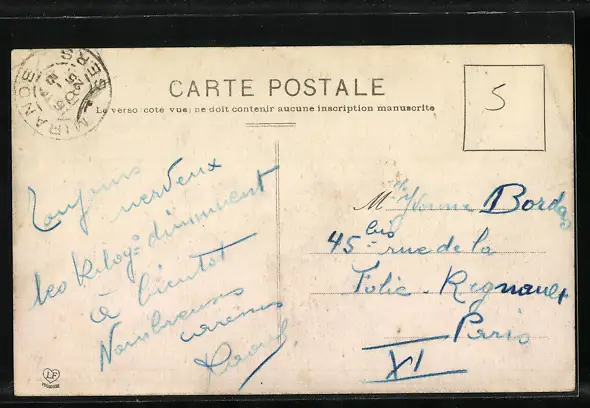 CARTE POSTALE
Le verso (coté vue) ne doit contenir aucune inscription manuscrite
MIRANDE
GERS
5
Toujours
nerveux
les Kilogs diminuent
à bientôt
Nombreuses
caresses
Mlle Yvonne Bordas
45 bis rue de la
Folie-Regnault
Paris
XI
LF